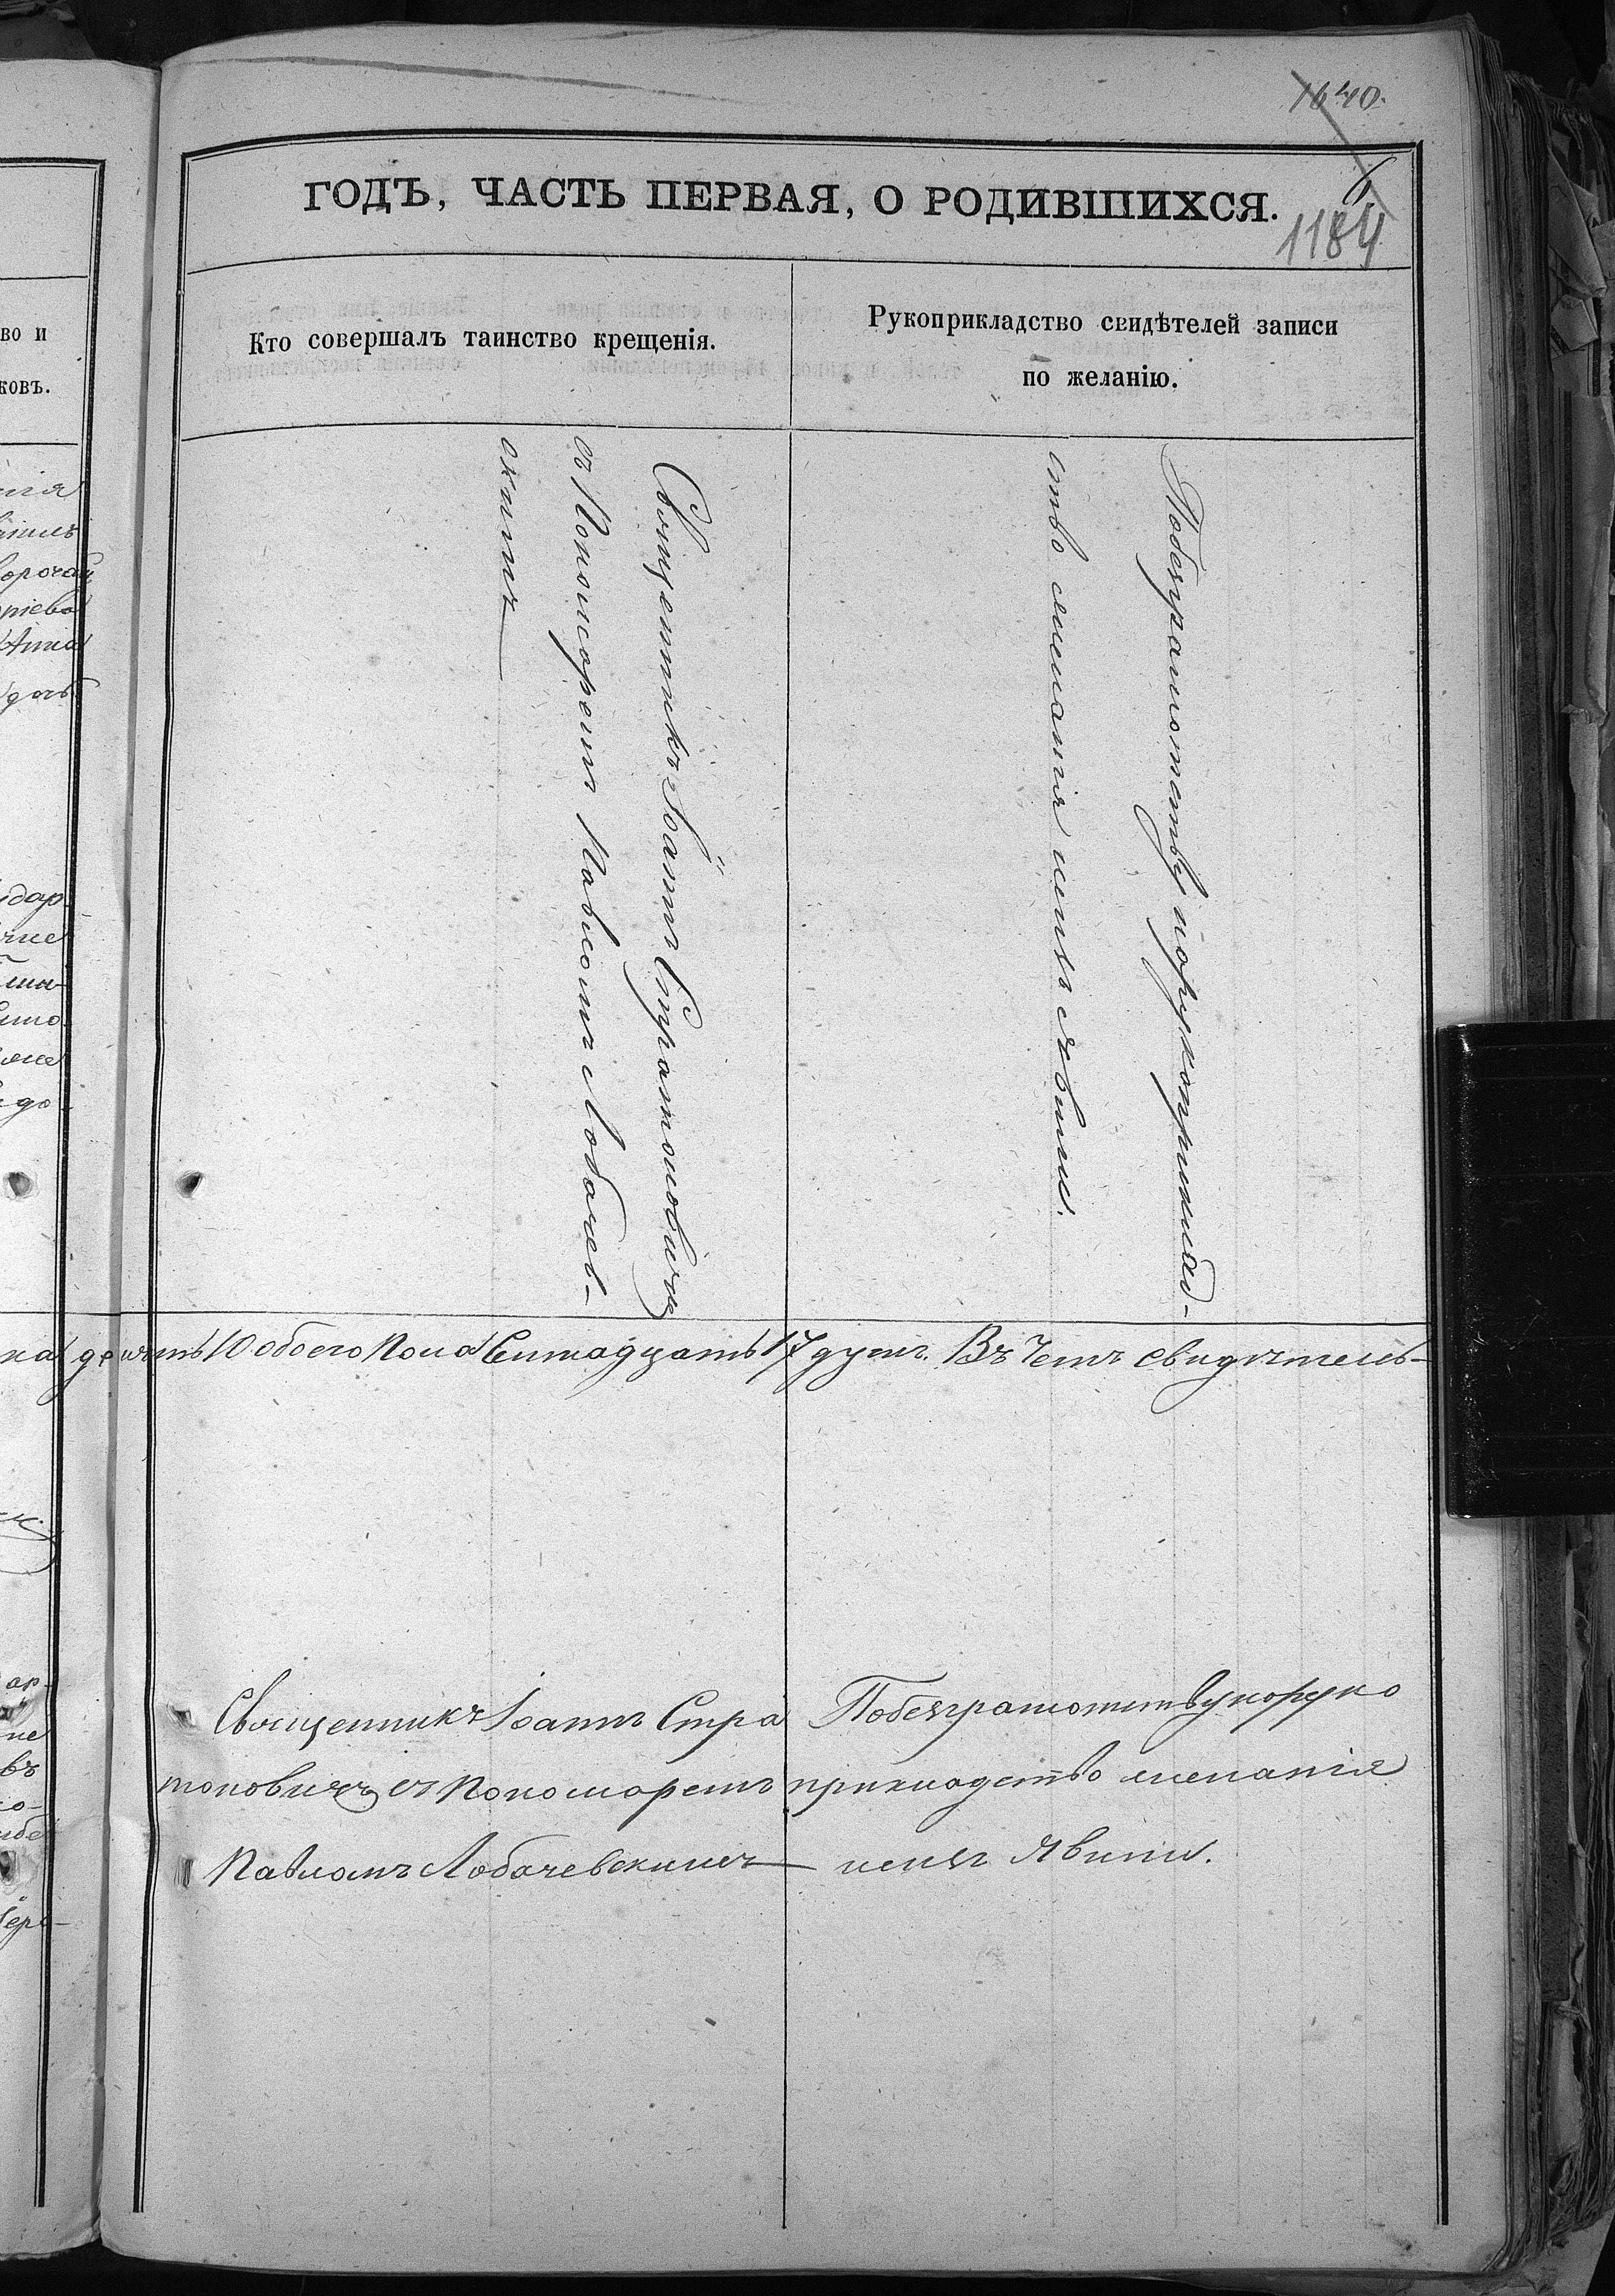 1640.
6
ГОДЪ, ЧАСТЬ ПЕРВАЯ, О РОДИВШИХСЯ.
1184
во и
ковъ.
Кто совершалъ таинство крещенія.
Рукоприкладство свидѣтелей записи
по желанію.
Священникъ Іоаннъ Стратоновичъ
съ Пономоремъ Павломъ Лобачев-
скимъ
Побезграмотству порукоприклад-
ство желанія неизъявили.
десять 10 обоего Пола Семнадцать 17 душъ. Въ Чемъ свидѣтель-
Священникъ Іоаннъ Стра
тоновичъ съ Пономоремъ
Павломъ Лобачевскимъ
Побезграмотству поруко
прикладство желанія
неизъ явили.